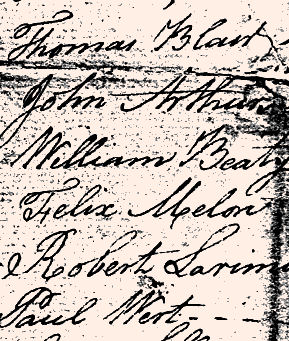 Thomas Blair
John Arthurs
William Beaty
Felix Melon
Robert Larim
Paul Wert - - -